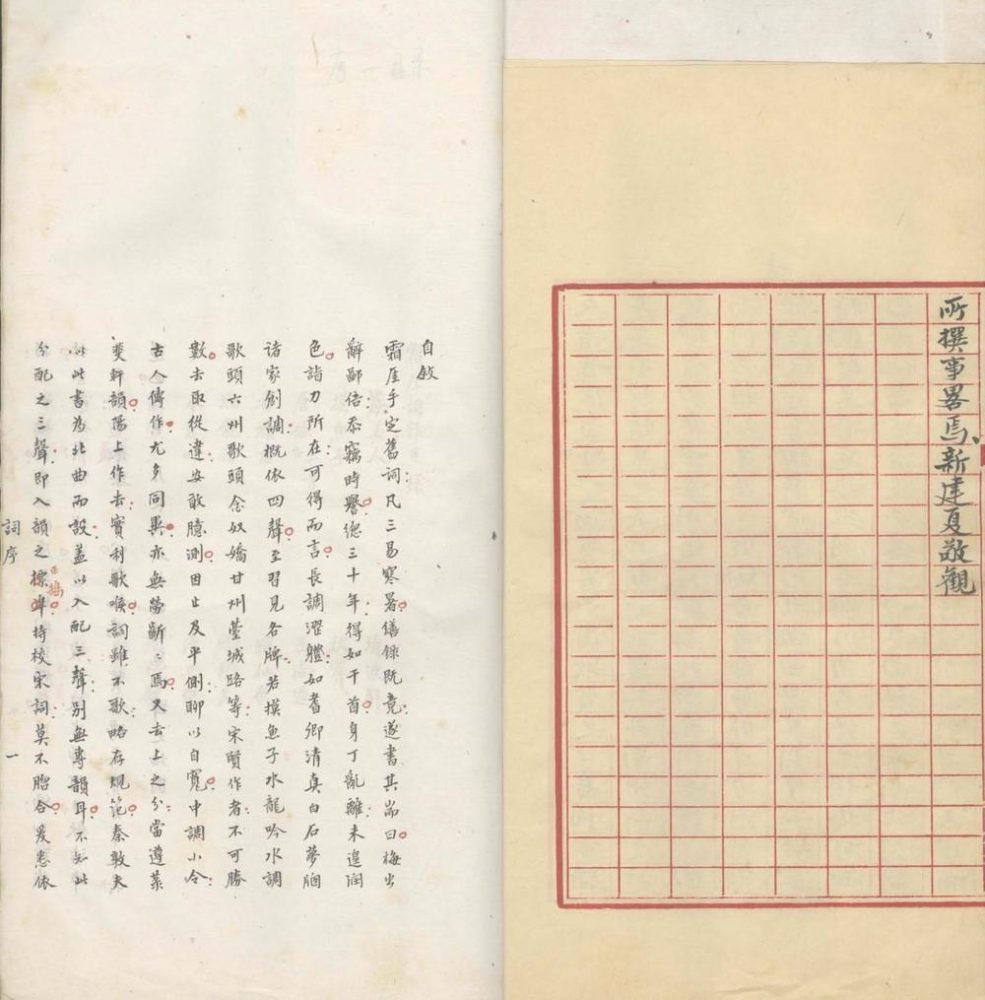 所撰事畧焉新建夏敬觀
自敘
霜厓手定舊詞凡三易寒暑繕録既竟遂書其耑曰梅出
辭鄙倍忝竊時譽總三十年得如干首身丁亂離未遑潤
色詣力所在可得而言長調澀體如耆卿清真白石夢牕
諸家創調概依四聲至習見各牌若摸魚子水龍吟水調
歌頭六州歌頭念奴嬌甘州臺城路等宋賢作者不可勝
數去取從違安敢臆測因止及平側聊以自寬中調小令
古人傳作尤多同異亦無勞齗〻焉又去上之分當遵菉
斐軒韻陽上作去實利歌喉詞雖不歌略存規范秦敦夫
以此書為北曲而設蓋以入配三聲別無專韻耳不知此
分配之三聲即入韻之標準持校宋詞莫不脗合爰悉依
詞序
一